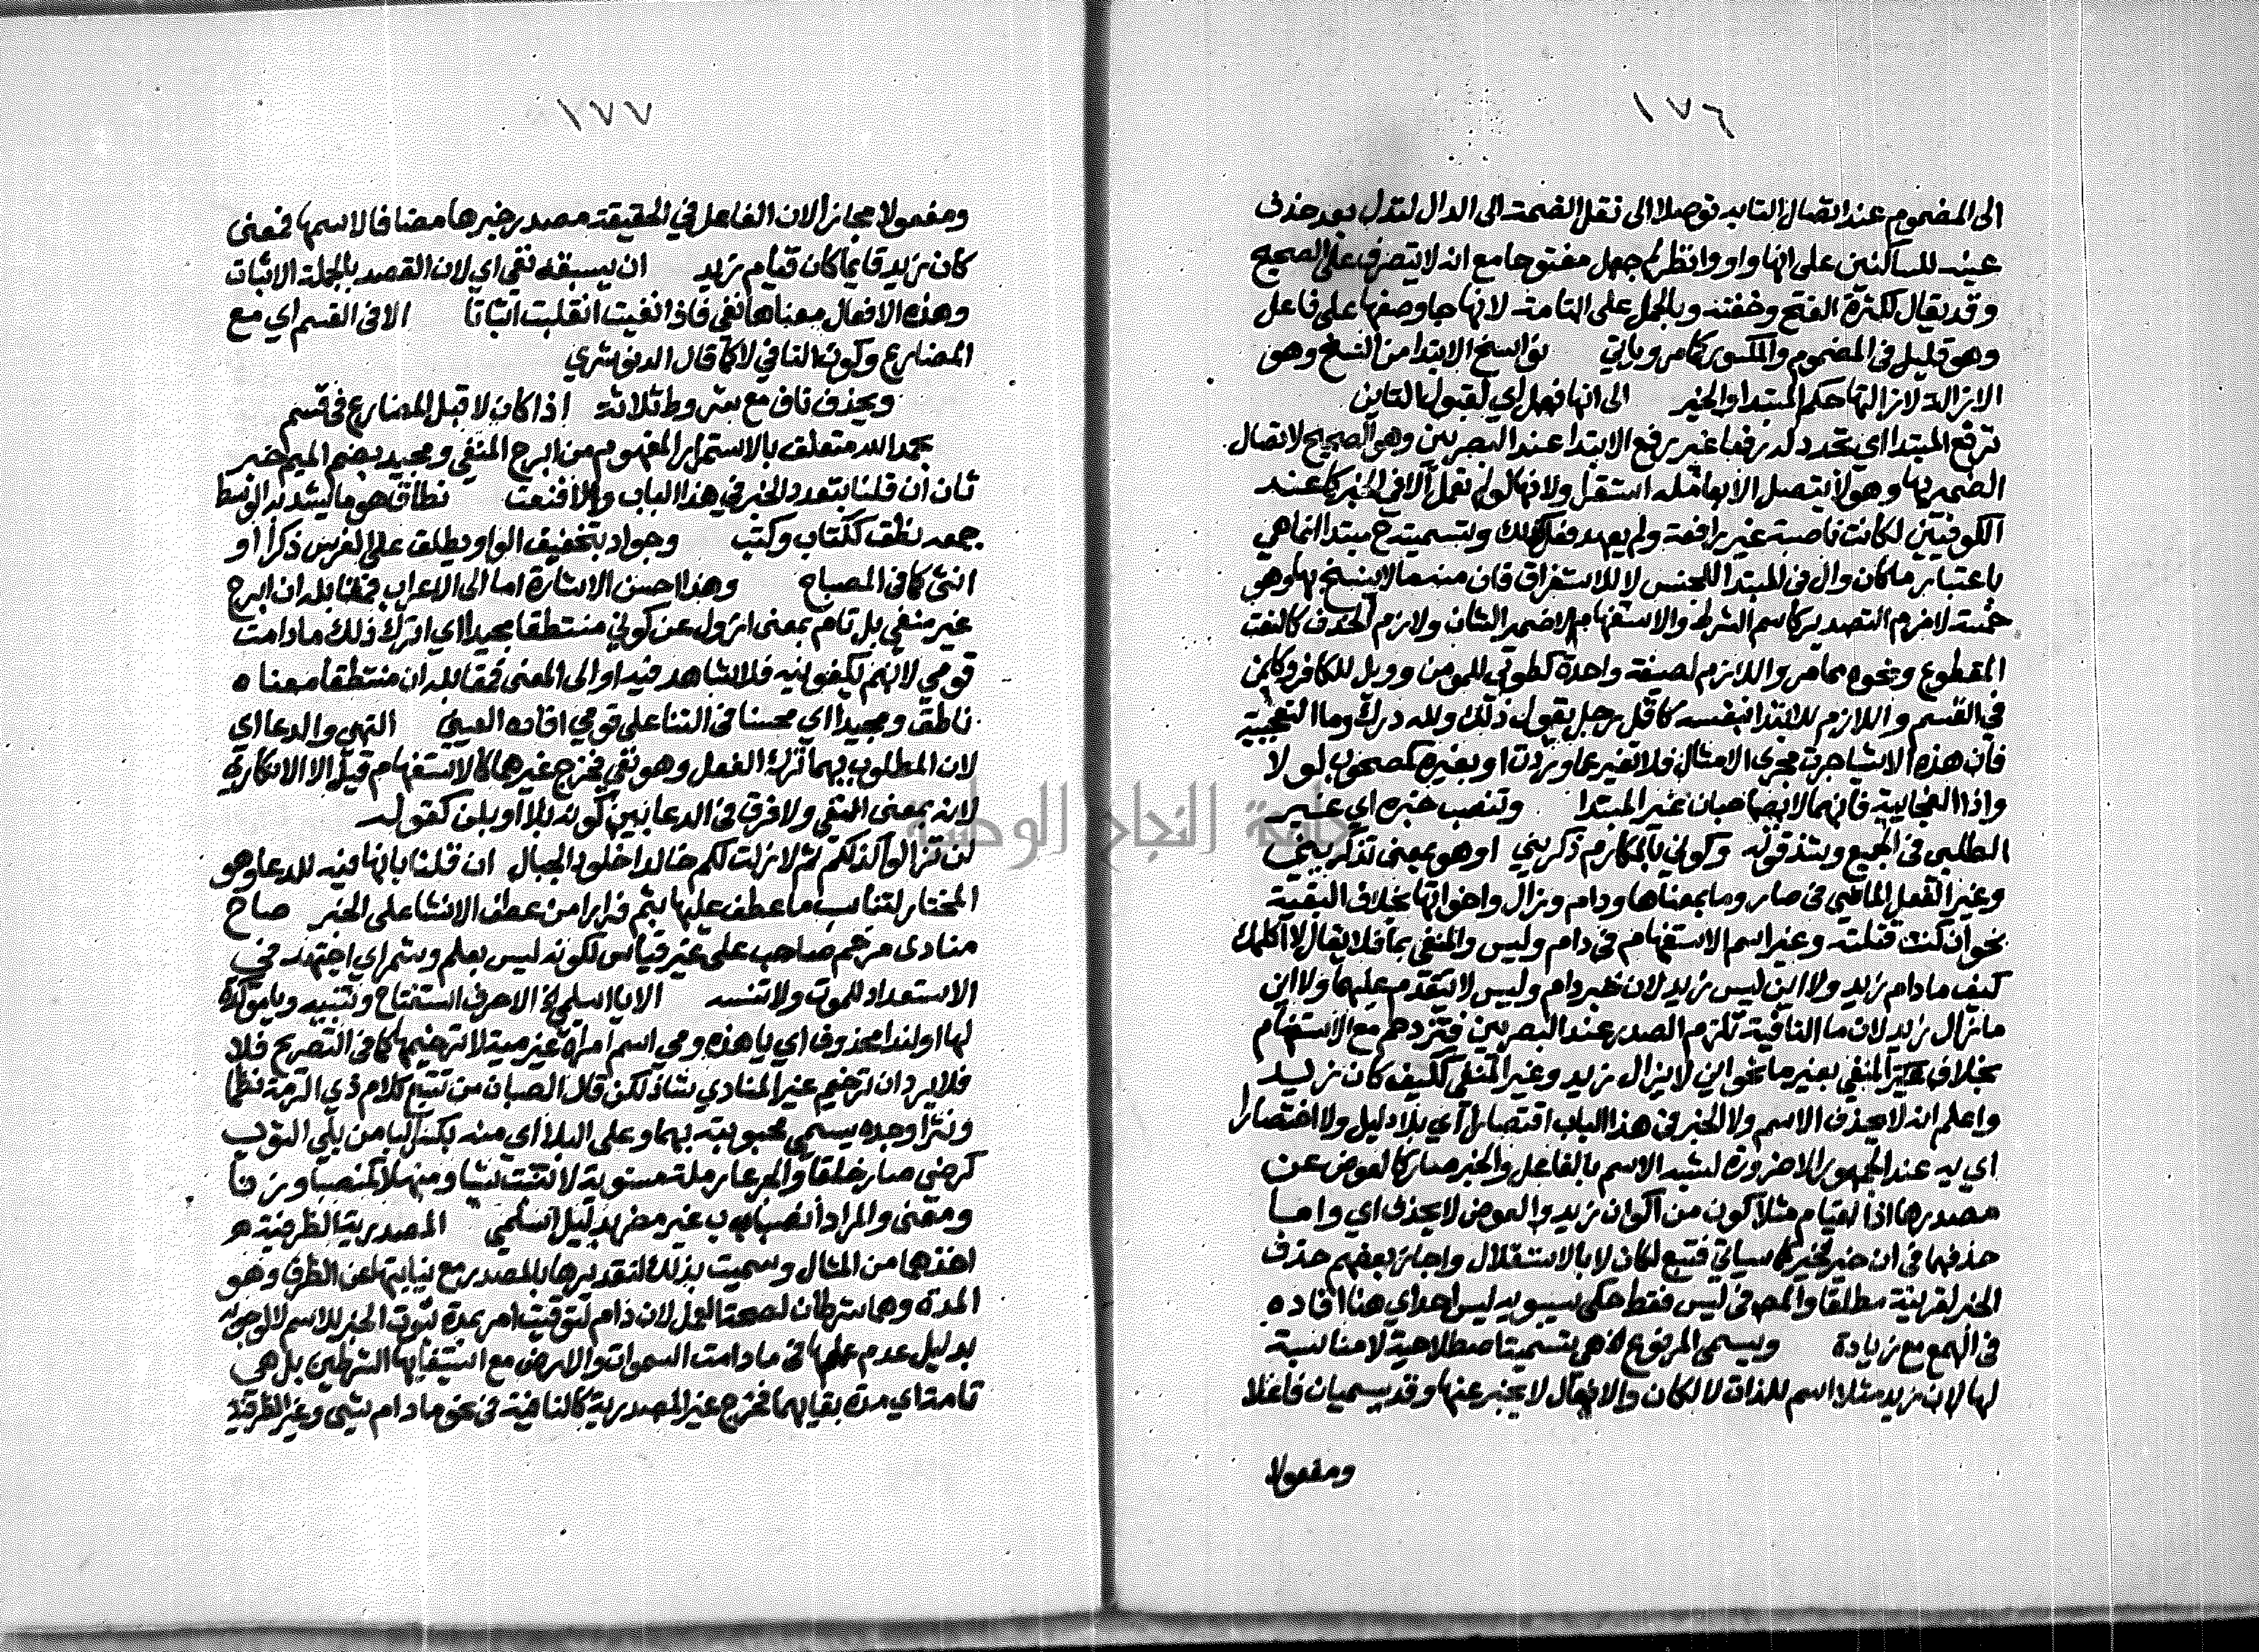 ١٧٦
الى المضموم عند اتصال التا به توصلا الى نقل الضمة الى الدال لتدل بعد حذف
عينه للساكنين على انها واو وانظر لم جعل مفتوحا مع انه لا يتصرف على الصحيح
وقد يقال لكثرة الفتح وخفته وبالحمل على التامة لانها جا وصفها على فاعل
وهو قليل في المضموم والمكسور كما مر وياتي نواسخ الابتدا من النسخ وهو
الازالة لازالتها حكم المبتدا والخبر الى انها فعل اي لقبولها التاين
ترفع المبتدا اي تجدد له رفعا غير رفع الابتدا عند البصريين وهو الصحيح لاتصال
الضمير بها وهو لا يتصل الا بعامله استقل ولانها لو لم تعمل الا في الخبر كما عند
الكوفيين لكانت ناصبة غير رافعة ولم يعهد فعل كذلك وتسميته ح مبتدا انما هي
باعتبار ما كان وال في المبتدا للجنس لا للاستغراق فان منه ما لا ينسخ بها وهو
خمسة لازم التصدير كاسم الشرط والاستفهام الا ضمير الشان ولازم الحذف كالنعت
المقطوع ونحوه مما مر واللازم لصيغة واحدة كطوبى للمومن وويل للكافر وكايمن
في القسم واللازم للابتدا بنفسه كاقل رجل يقول ذلك ولله درك وما التعجبية
فان هذه الاشيا جرت مجرى الامثال فلا تغير عما وردت او بغيره كمصحوب لولا
واذا الفجايية فانهما لا يصاحبان غير المبتدا وتنصب خبره اي غير
الطلبي في الجميع وشذ قوله وكوني بالمكارم ذكريني او هو بمعنى تذكريني
وغير الفعل الماضي في صار وما بمعناها ودام وزال واخواتها بخلاف البقية
نحو ان كنت قلته وغير اسم الاستفهام في دام وليس والمنفي بما فلا يقال لا اكلمك
كيف ما دام زيد ولا اين ليس زيد لان خبر دام وليس لا يتقدم عليها ولا اين
ما زال زيد لان ما النافية تلزم الصدر عند البصريين فتزدحم مع الاستفهام
بخلاف المنفي بغير ما نحو اين لا يزال زيد وغير المنفي ككيف كان زيد
واعلم انه لا يحذف الاسم ولا الخبر في هذا الباب اقتصارا اي بلا دليل ولا اختصارا
اي به عند الجمهور الا ضرورة لشبه الاسم بالفاعل والخبر صار كالعوض عن
مصدرها اذ القيام مثلا كون من اكوان زيد والعوض لا يحذف اي واما
حذفها في ان خير فخير كما سياتي فتبع لكان لا بالاستقلال واجاز بعضهم حذف
الخبر لقرينة مطلقا والمص في ليس فقط حكى سيبويه ليس احد اي هنا افاده
في الهمع مع زيادة ويسمى المرفوع الخ هي تسمية اصطلاحية لا مناسبة
لها لان زيد مثلا اسم للذات لا لكان والافعال لا يخبر عنها وقد يسميان فاعلا
ومفعولا
١٧٧
ومفعولا مجازا لان الفاعل في الحقيقة مصدر خبرها مضافا لاسمها فمعنى
كان زيد قايما كان قيام زيد ان يسبقه نفي اي لان القصد بالجملة الاثبات
وهذه الافعال معناها نفي فاذا نفيت انقلبت اثباتا الا في القسم اي مع
المضارع وكون النافي لا كما قال الدنوشري
ويحذف ناف مع شروط ثلاثة اذا كان لا قبل المضارع في قسم
بحمد الله متعلق بالاستمرار المفهوم من ابرح المنفي ومجيد بضم الميم خبر
ثان ان قلنا بتعدد الخبر في هذا الباب والا فنعت نطاق هو ما يشد به الوسط
جمعه نطق ككتاب وكتب وجواد بتخفيف الواو يطلق على الفرس ذكرا او
انثى كما في المصباح وهذا احسن الاشارة اما الى الاعراب فمقابله ان ابرح
غير منفي بل تام بمعنى ازول عن كوني منتطقا مجيدا اي اترك ذلك ما دامت
قومي لانهم يكفونيه فلا شاهد فيه او الى المعنى فمقابله ان منتطقا معناه
ناطق ومجيدا اي محسنا في الثنا على قومي افاده العيني النهي والدعا اي
لان المطلوب بهما ترك الفعل وهو نفي فخرج غيرهما كالاستفهام قيل الا الانكاري
لانه بمعنى النفي ولا فرق في الدعا بين كونه بلا او بلن كقوله
لن تزالوا كذلكم ثم لا زلت لكم خالدا خلود الجبال ان قلنا بانها فيه للدعا وهو
المختار لتناسب ما عطف عليها بثم فرارا من عطف الانشا على الخبر صاح
منادى مرخم صاحب على غير قياس لكونه ليس بعلم وشمر اي اجتهد في
الاستعداد للموت ولا تنسه الا يا اسلمي الخ الا حرف استفتاح وتنبيه ويا موكدة
لها او لندا محذوف اي يا هذه ومي اسم امراة غير مية لا ترخيمها كما في التصريح فلا
فلا يرد ان ترخيم غير المنادي شاذ لكن قال الصبان من تتبع كلام ذي الرمة نظما
ونثرا وجده يسمي محبوبته بهما وعلى البلا اي منه بكسر البا من بلي الثوب
كرضي صار خلقا والجرعا رملة مستوية لا تنبت شيا ومنهلا كمنصبا وزنا
ومعنى والمراد انصباب غير مضر بدليل اسلمي المصدرية الظرفية هو
اخذهما من المثال وسميت بذلك لتقديرها بالمصدر مع نيابتها عن الظرف وهو
المدة وهما شرطان لصحة العمل لان دام لتوقيت امر بمدة ثبوت الخبر للاسم لا لوجوبه
بدليل عدم عملها في ما دامت السموات والارض مع استيفايها الشرطين بل هي
تامة اي مدة بقايهما فخرج غير المصدرية كالنافية في نحو ما دام شي وغير الظرفية